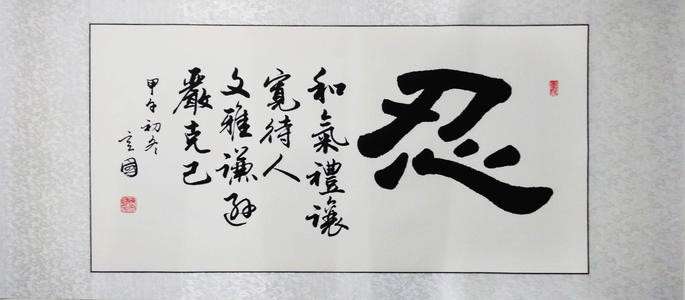 忍
和氣禮讓
寬待人
文雅謙遜
嚴克己
甲午初冬